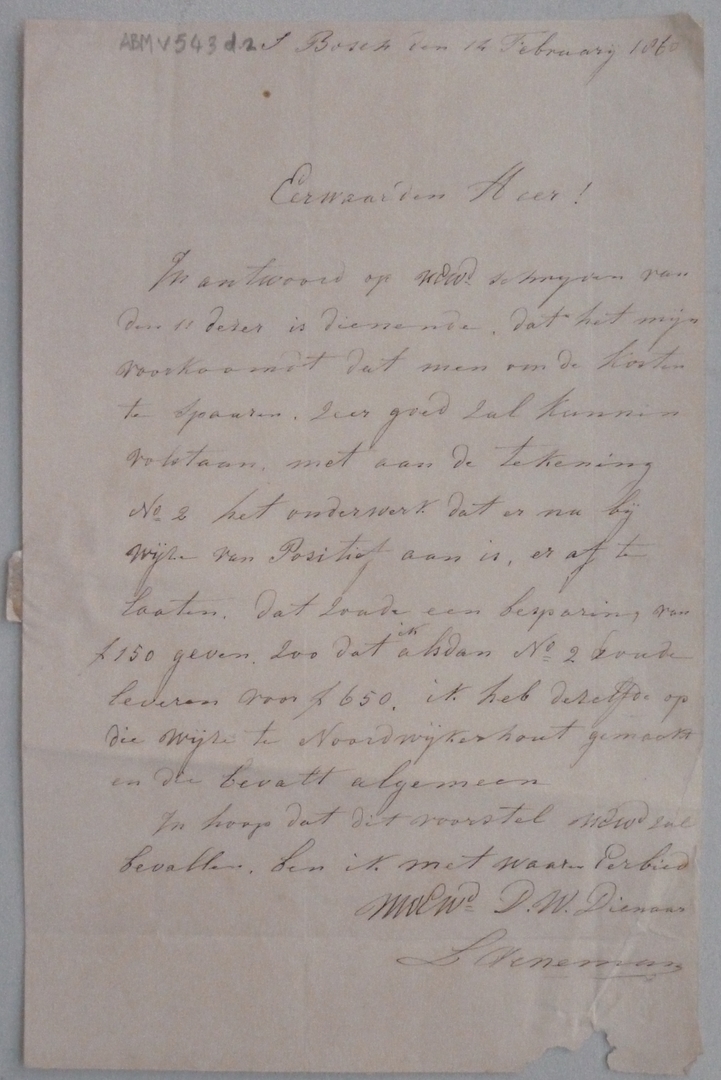 ABM V543 d.2
S Bosch den 12 February 1860
Eerwaarden Heer!
In antwoord op UEwd schryven van
den 11 dezer is dienende, dat het mijn
voorkoomdt dat men om de kosten
te spaaren. zeer goed zal kunnen
volstaan, met aan de tekening
No 2 het onderwerk dat er nu bij
wijze van Positief aan is, er af te
laaten, dat zoude een besparing van
f 150 geven, zoo dat ik alsdan No 2 zoude
leveren voor f 650, ik heb dezelfde op
die wijze te Noordwijkerhout gemaakt
en die bevalt algemeen
In hoop dat dit voorstel UEwd zal
bevallen, ben ik met waare Eerbied
D.W. Dienaar
L Veneman